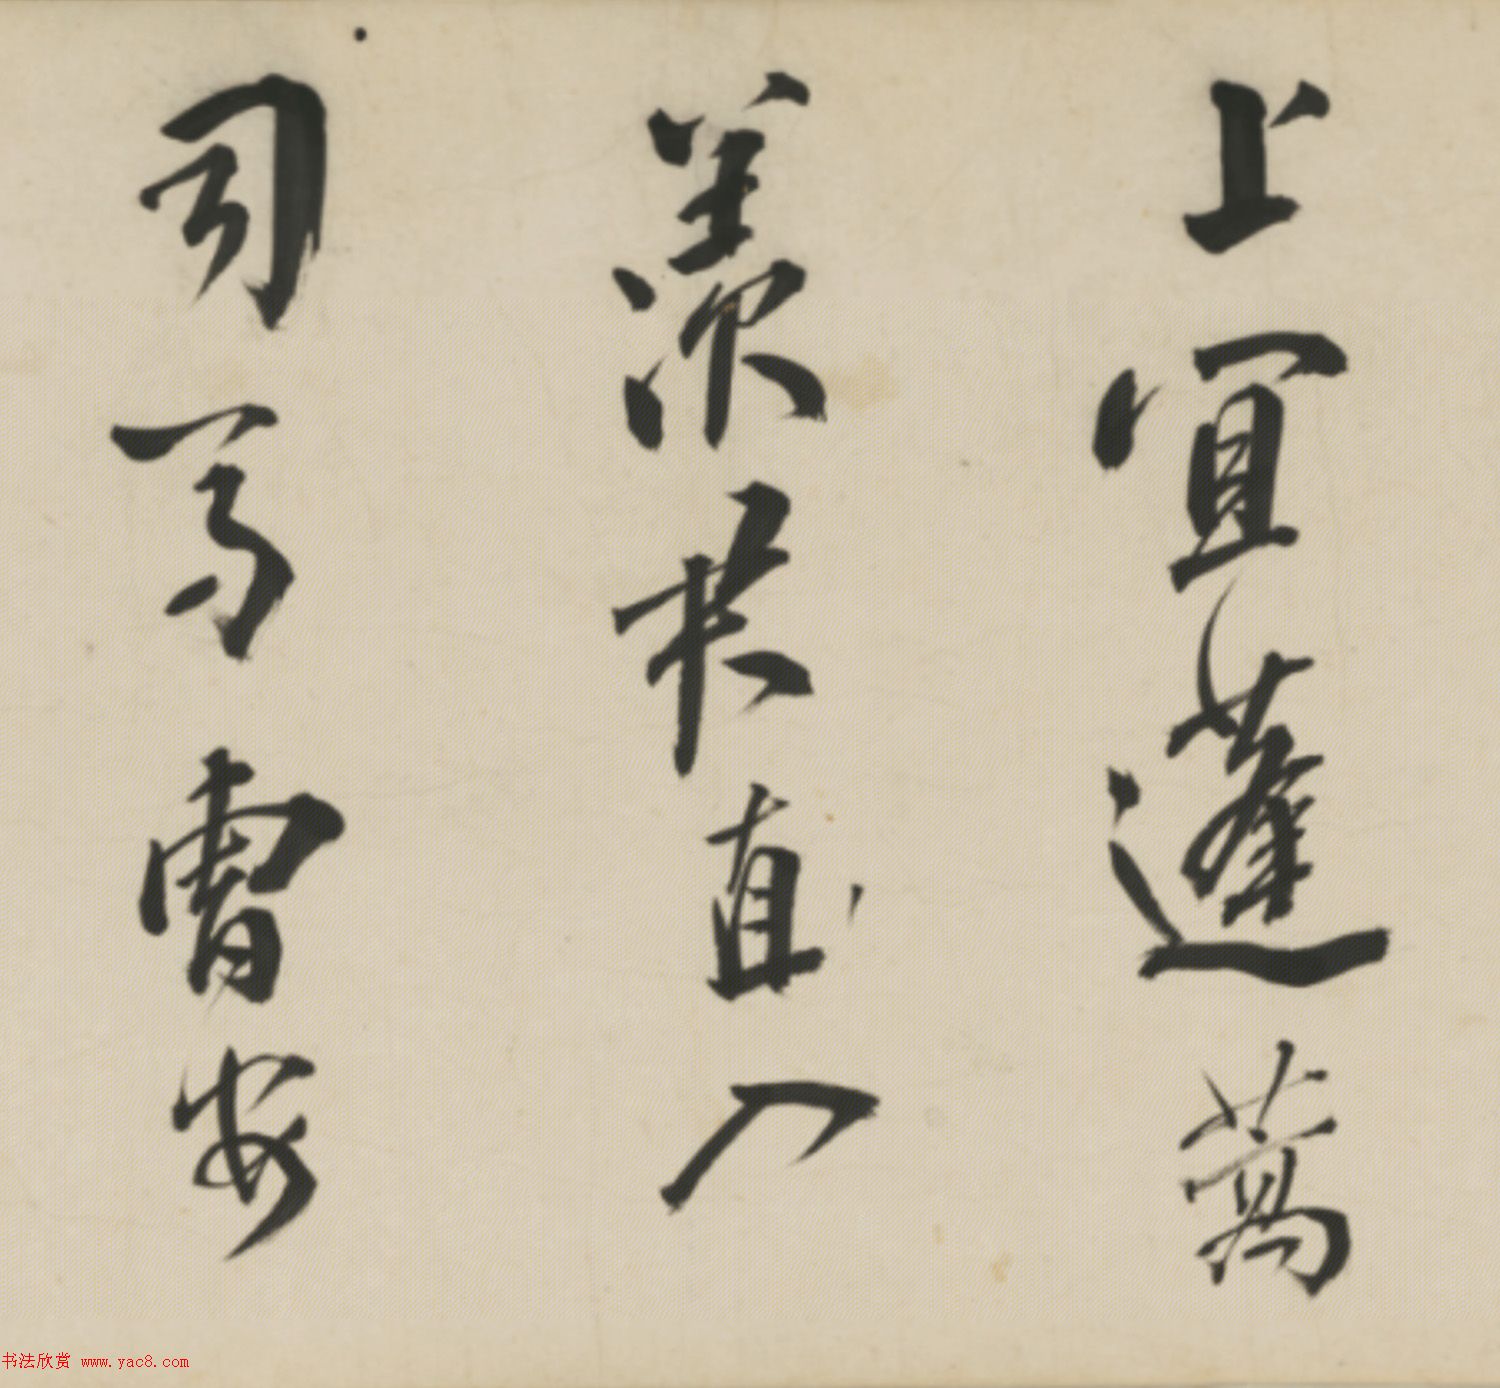 上宜蓬萬
羨直入
司馬安
书法欣赏 www.yac8.com